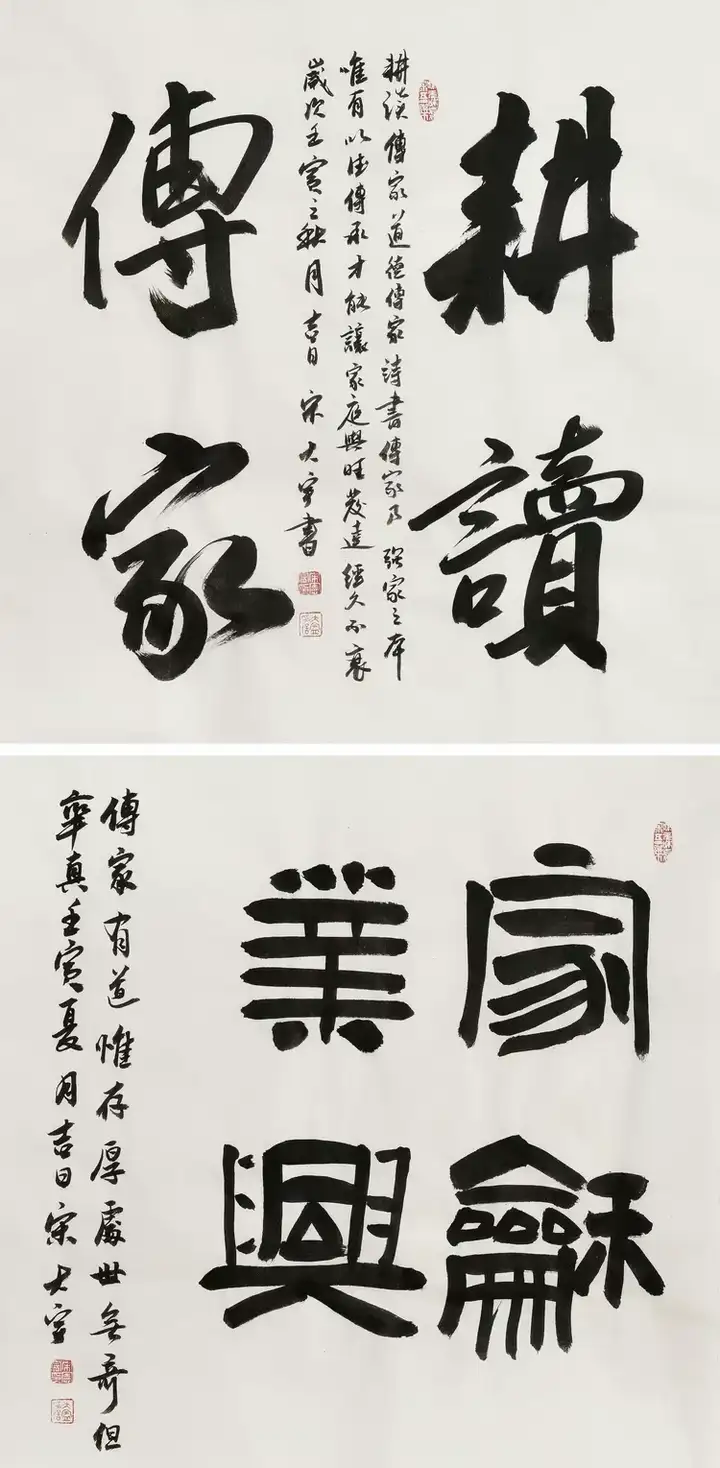 耕讀
耕读傳家道德傳家詩書傳家乃強家之本
唯有以德傳承才能讓家庭興旺發達經久不衰
歲次壬寅之秋月吉日宋大書
傳家
家龢
業興
傳家有道惟存厚處世無奇但
率真壬寅夏月吉日宋大